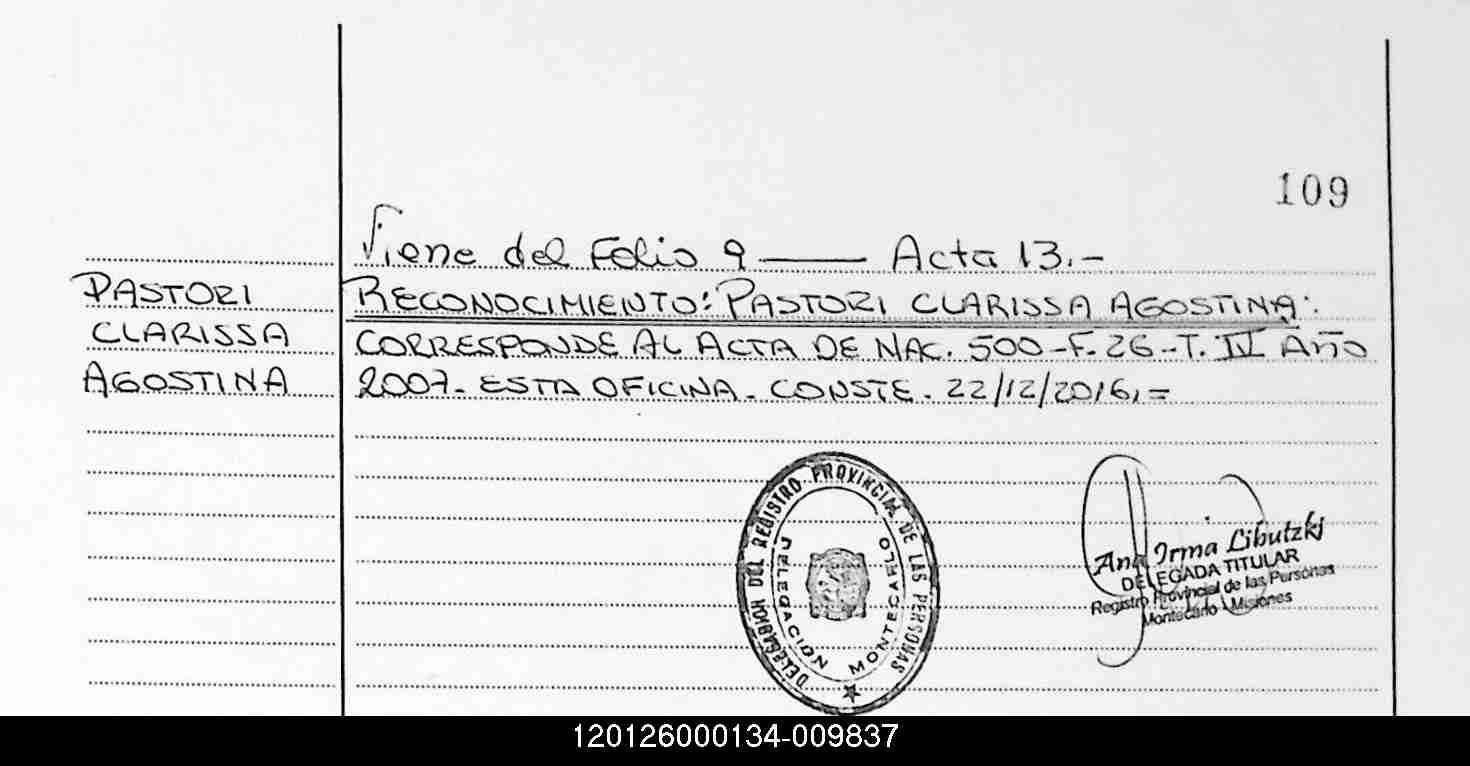 109
Viene del Folio 9 —— Acta 13.-
PASTORI
CLARISSA
AGOSTINA
RECONOCIMIENTO: PASTORI CLARISSA AGOSTINA:
CORRESPONDE AL ACTA DE NAC. 500-F.26-T. IV AÑO
2007- ESTA OFICINA. CONSTE. 22/12/2016,=
DELEGACION DEL REGISTRO PROVINCIAL DE LAS PERSONAS
DELEGACION MONTECARLO
Ana Irma Libutzki
DELEGADA TITULAR
Registro Provincial de las Personas
Montecarlo - Misiones
120126000134-009837